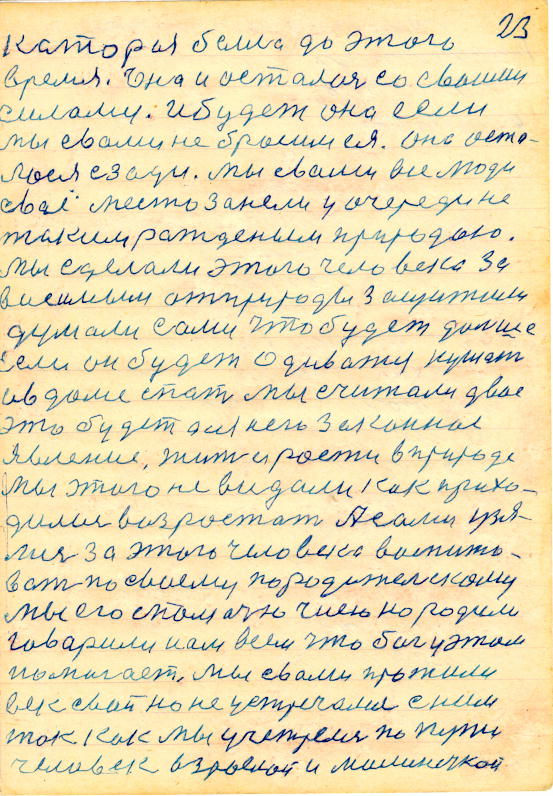 23
каторая была до этого
время. Она и осталася со своими
силами. И будет она если
мы с вами не бросимся. она оста-
лося сзади. мы с вами все люди
сваё место занели у очереди не
таким рожденым природою.
мы сделали этого человека за
висимым от природы заставили
думали сами что будет дальше
если он будет одиважи кушат
и в доме спат мы считали двое
это будет для него законное
явление, жит и рости в природе
мы этого не видали как прихо-
дилось возростат А сами взя-
лися за этого человека воспито-
ват по своему по родителскому
мы его спомачю чиею народили
говарили нам всем что бог у этом
помогает. мы с вами прожили
век свой но не устречался с ним
так как мы устретеля по пути
человек взрослой и малинечкой